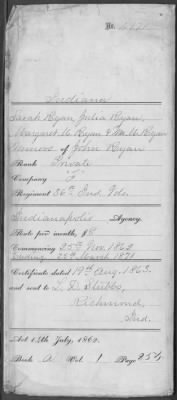 No.
Indiana
Sarah Ryan, Julia Ryan,
Margaret M. Ryan & Wm. M. Ryan
Minors of John Ryan
Rank Private
Company "I"
Regiment 36th Ind. Vols.
Indianapolis Agency.
Rate per month, $8
Commencing 25th Nov. 1862
Ending 25th March 1871
Certificate dated 19th Aug. 1863.
and sent to L. D. Stubbs,
Richmond,
Ind.
Act 14th July, 1862.
Book A Vol. 1 Page 254